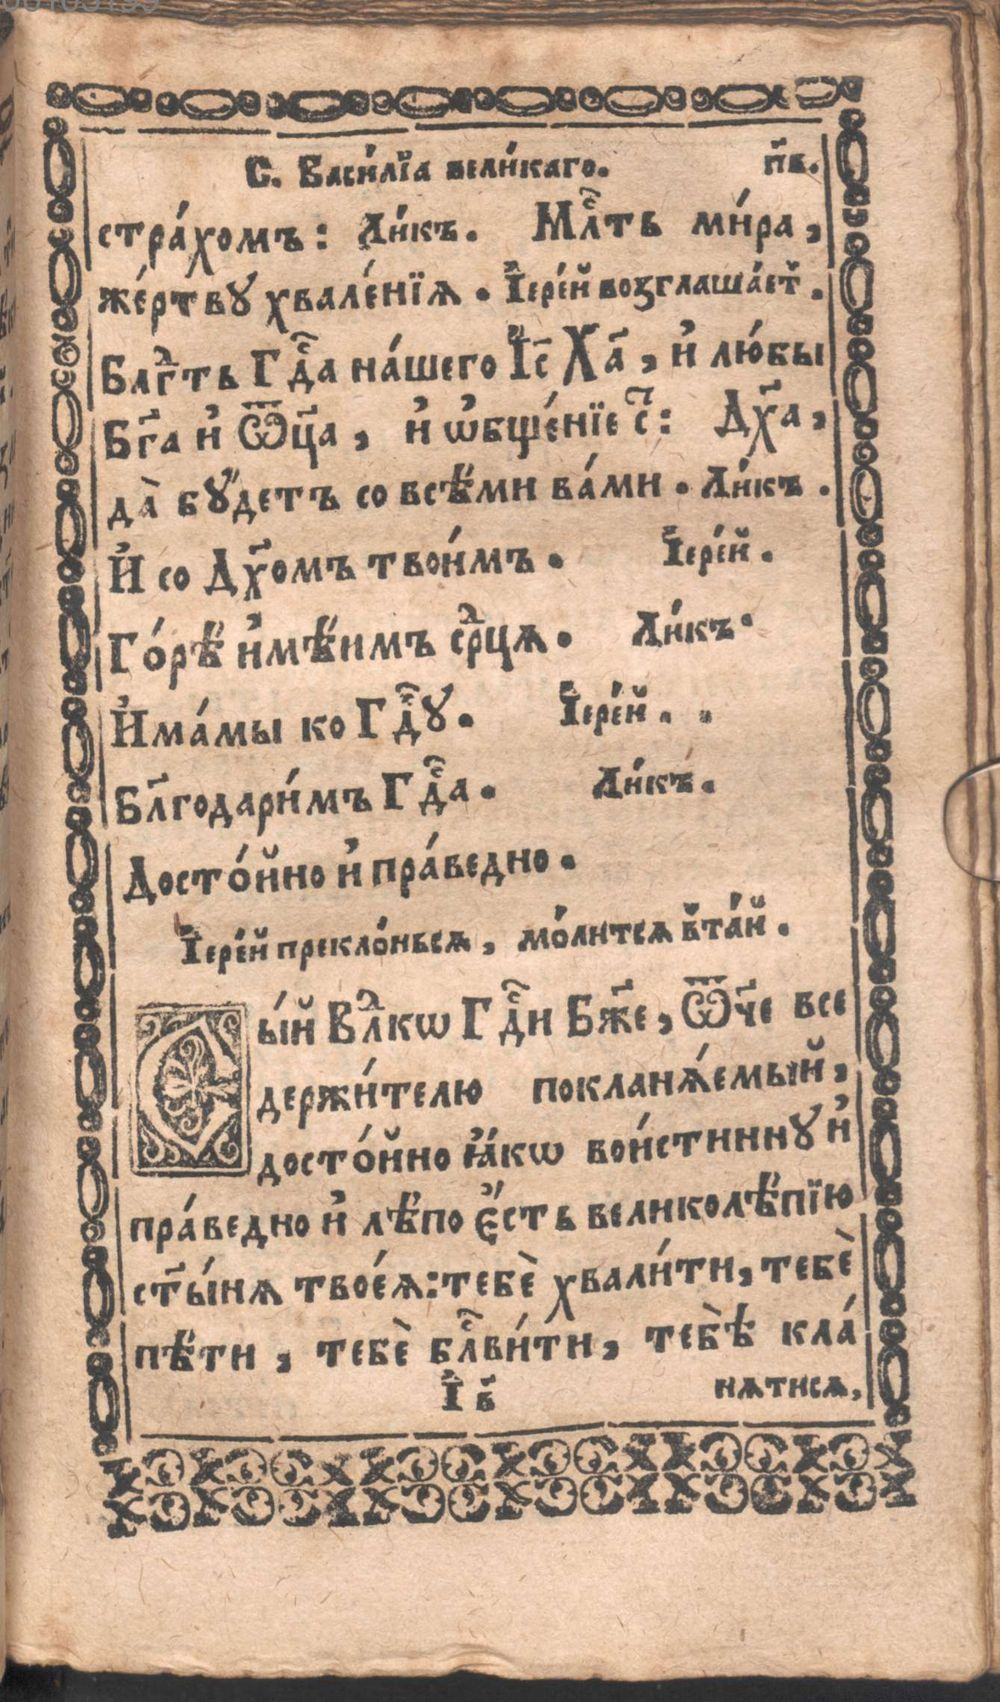 00105199
С. Васи́лїа вели́каго. п҃в.
стра́хомъ: Ли́къ. Млⷭ҇ть ми́ра,
же́ртвꙋ хвале́нїѧ. І҆ере́й возглаша́етъ.
Блгⷣть Гдⷭ҇а на́шего І҆с҃ Хⷭ҇а, и҆ любы̀
Бг҃а и҆ Ѿц҃а, и҆ ѡ҆бще́нїе с҃: Дх҃а,
да̀ бꙋ́детъ со всѣ́ми ва́ми. Ли́къ.
И҆ со Дх҃омъ твои́мъ. І҆ере́й.
Го́рѣ и҆мѣ́имъ срⷣцѧ. Ли́къ.
И҆ма́мы ко Гдⷭ҇ꙋ. І҆ере́й.
Бл҃годари́мъ Гдⷭ҇а. Ли́къ.
Досто́йно и҆ пра́ведно.
І҆ере́й прекло́нься, мо́литсѧ вта́й.
Сы́й Влⷣкѡ Гдⷭ҇и Бж҃е, Ѿч҃е все
держи́телю покланѧ́емый,
досто́йно ꙗ҆́кѡ вои́стиннꙋ и҆
пра́ведно и҆ лѣ́по є҆́сть великолѣ́пїю
ст҃ы́нѧ твоеѧ̀: тебѐ хвали́ти, тебѐ
пѣ́ти, тебѐ блⷭ҇ви́ти, тебѣ̀ кла́
І҆ в҃ нѧтисѧ,